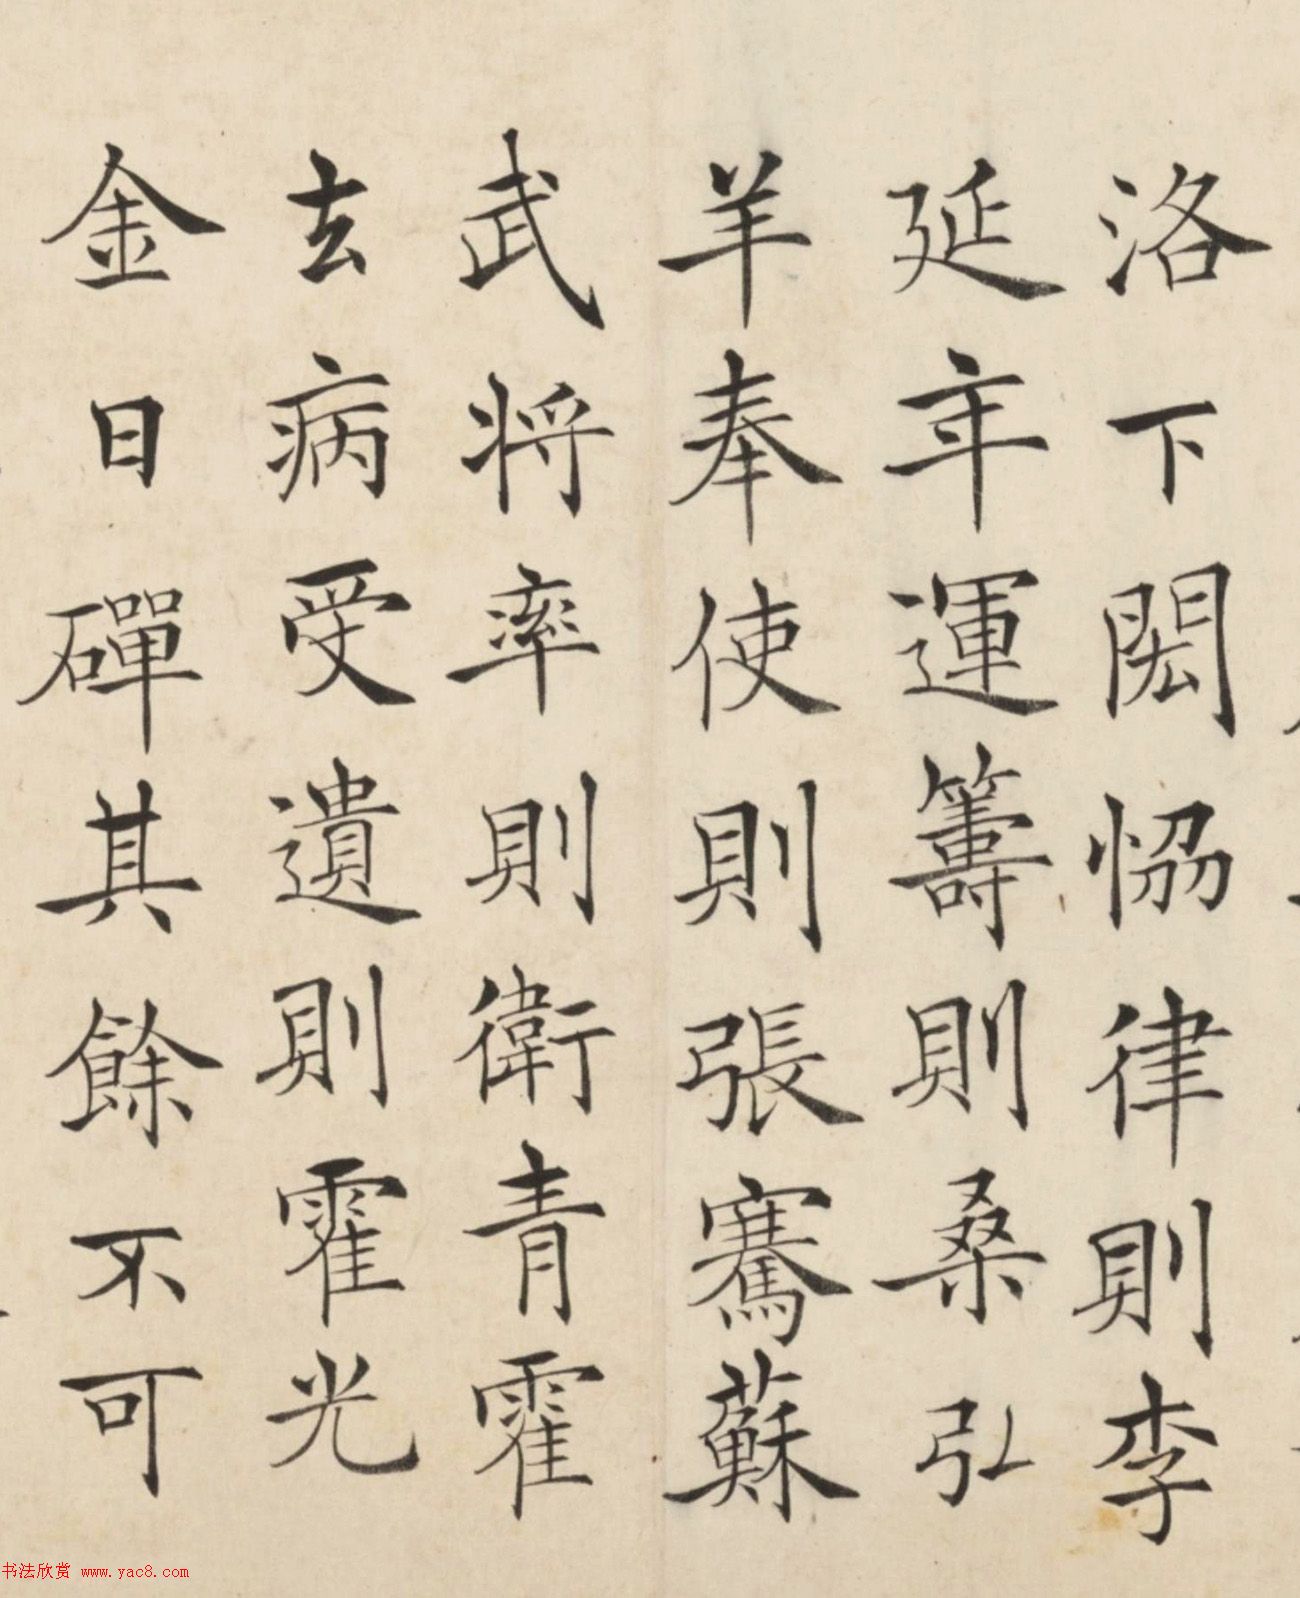 洛下閎恊律則李
延年運籌則桑弘
羊奉使則張騫蘇
武将率則衛青霍
去病受遺則霍光
金日磾其餘不可
书法欣赏 www.yac8.com